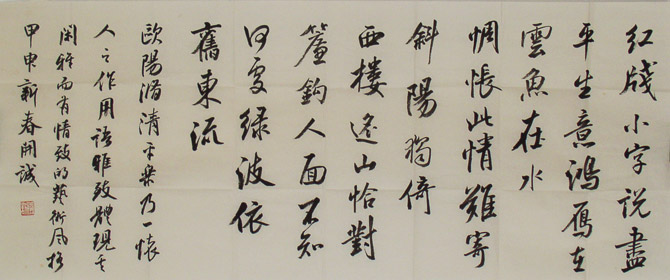 紅牋小字說盡
平生意鴻鴈在
雲魚在水
惆悵此情難寄
斜陽獨倚
西樓遙山恰對
簾鉤人面不知
何處綠波依
舊東流
歐陽脩清平樂乃一懷
人之作用語雅致體現其
閑雅而有情致的藝術風格
甲申新春開誠